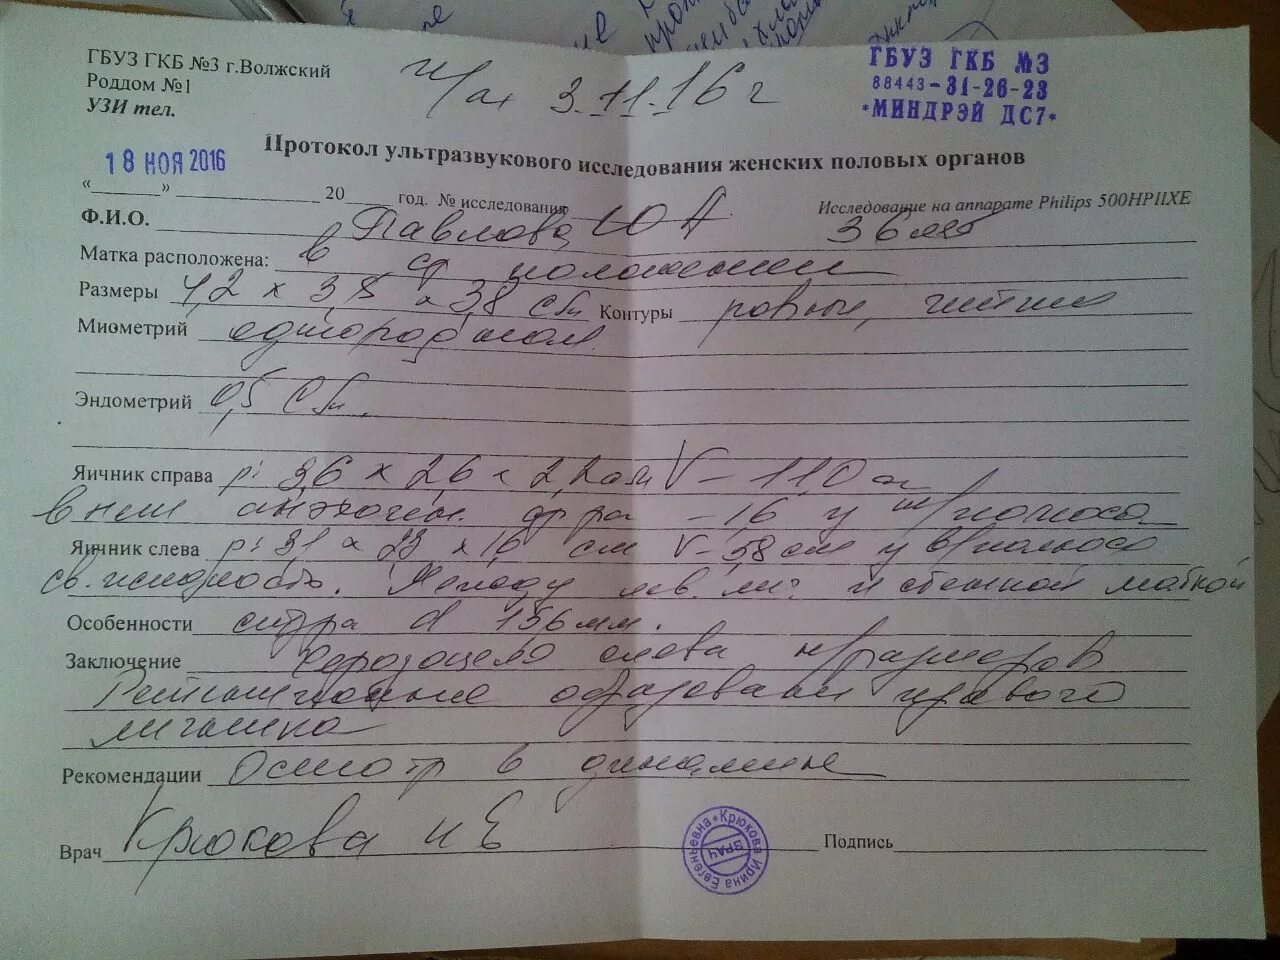 ГБУЗ ГКБ №3 г.Волжский
Роддом №1
УЗИ тел.
3.11.16 г
ГБУЗ ГКБ №3
88443-31-26-23
*МИНДРЭЙ ДС7*
Протокол ультразвукового исследования женских половых органов
18 НОЯ 2016
«______» ____________ 20____ год. № исследования
Исследование на аппарате Philips 500HPIIXE
Ф.И.О. Павлова Ю А 36 лет
Матка расположена: в ср положении
Размеры 4,2 х 3,8 х 3,8 см Контуры ровные, четкие
Миометрий однородный
Эндометрий 0,5 см.
Яичник справа р: 3,6 х 2,6 х 2,2 см V - 11,0 см
в нем анэхоген. -1,6 у полюса
Яичник слева р: 3,1 х 2,3 х 1,6 см V - 5,8 см у в/полюса
св. жидкость. Между лев. яич и стенкой маткой
Особенности d 156 мм.
Заключение слева н/размеров
Ретенционные образования правого
яичника
Рекомендации Осмотр в динамике
Врач Крюкова И Е
Подпись
Крюкова Ирина Евгеньевна
ВРАЧ